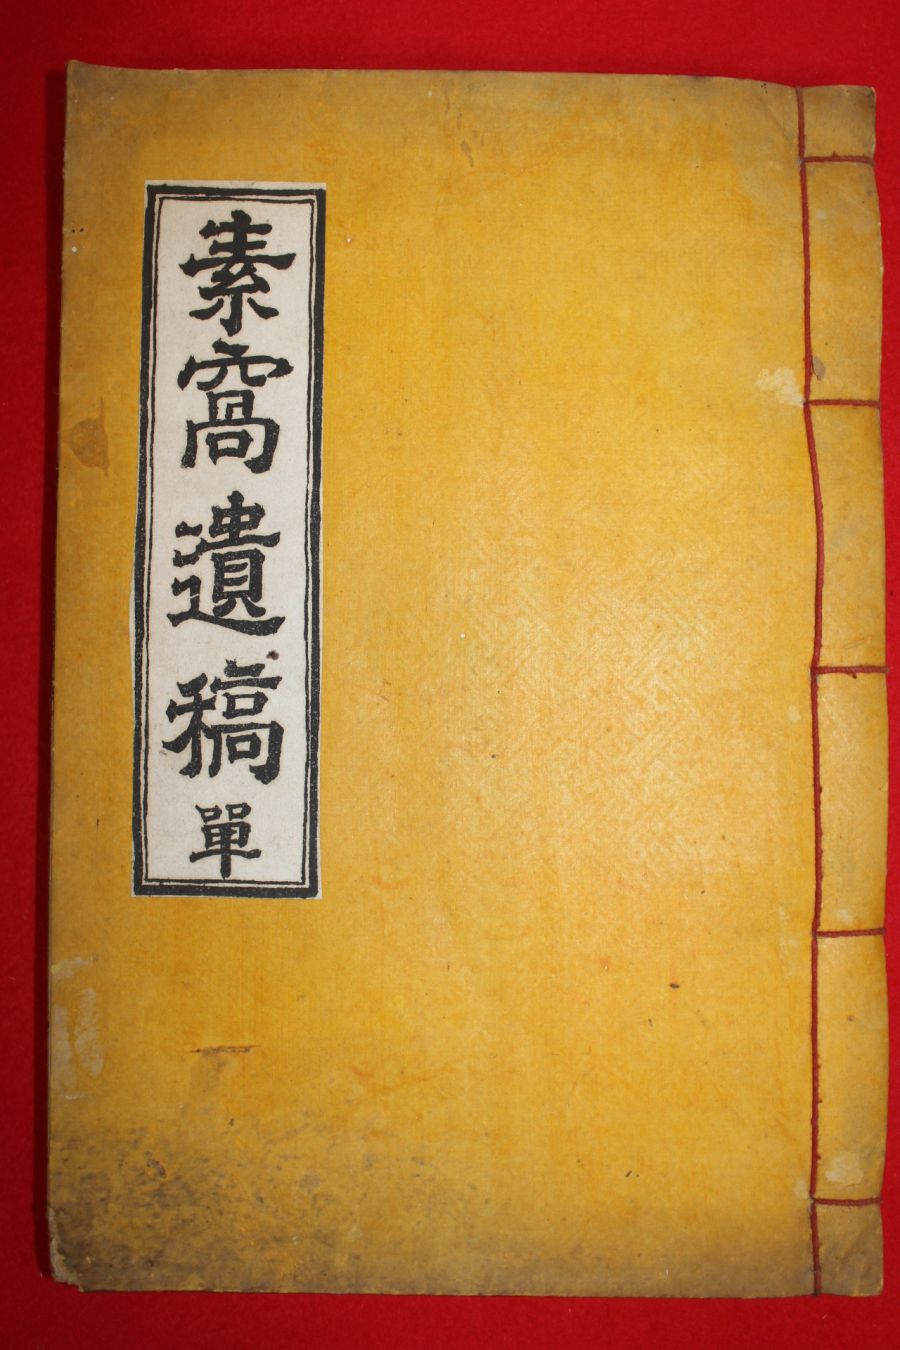 素窩遺稿 單